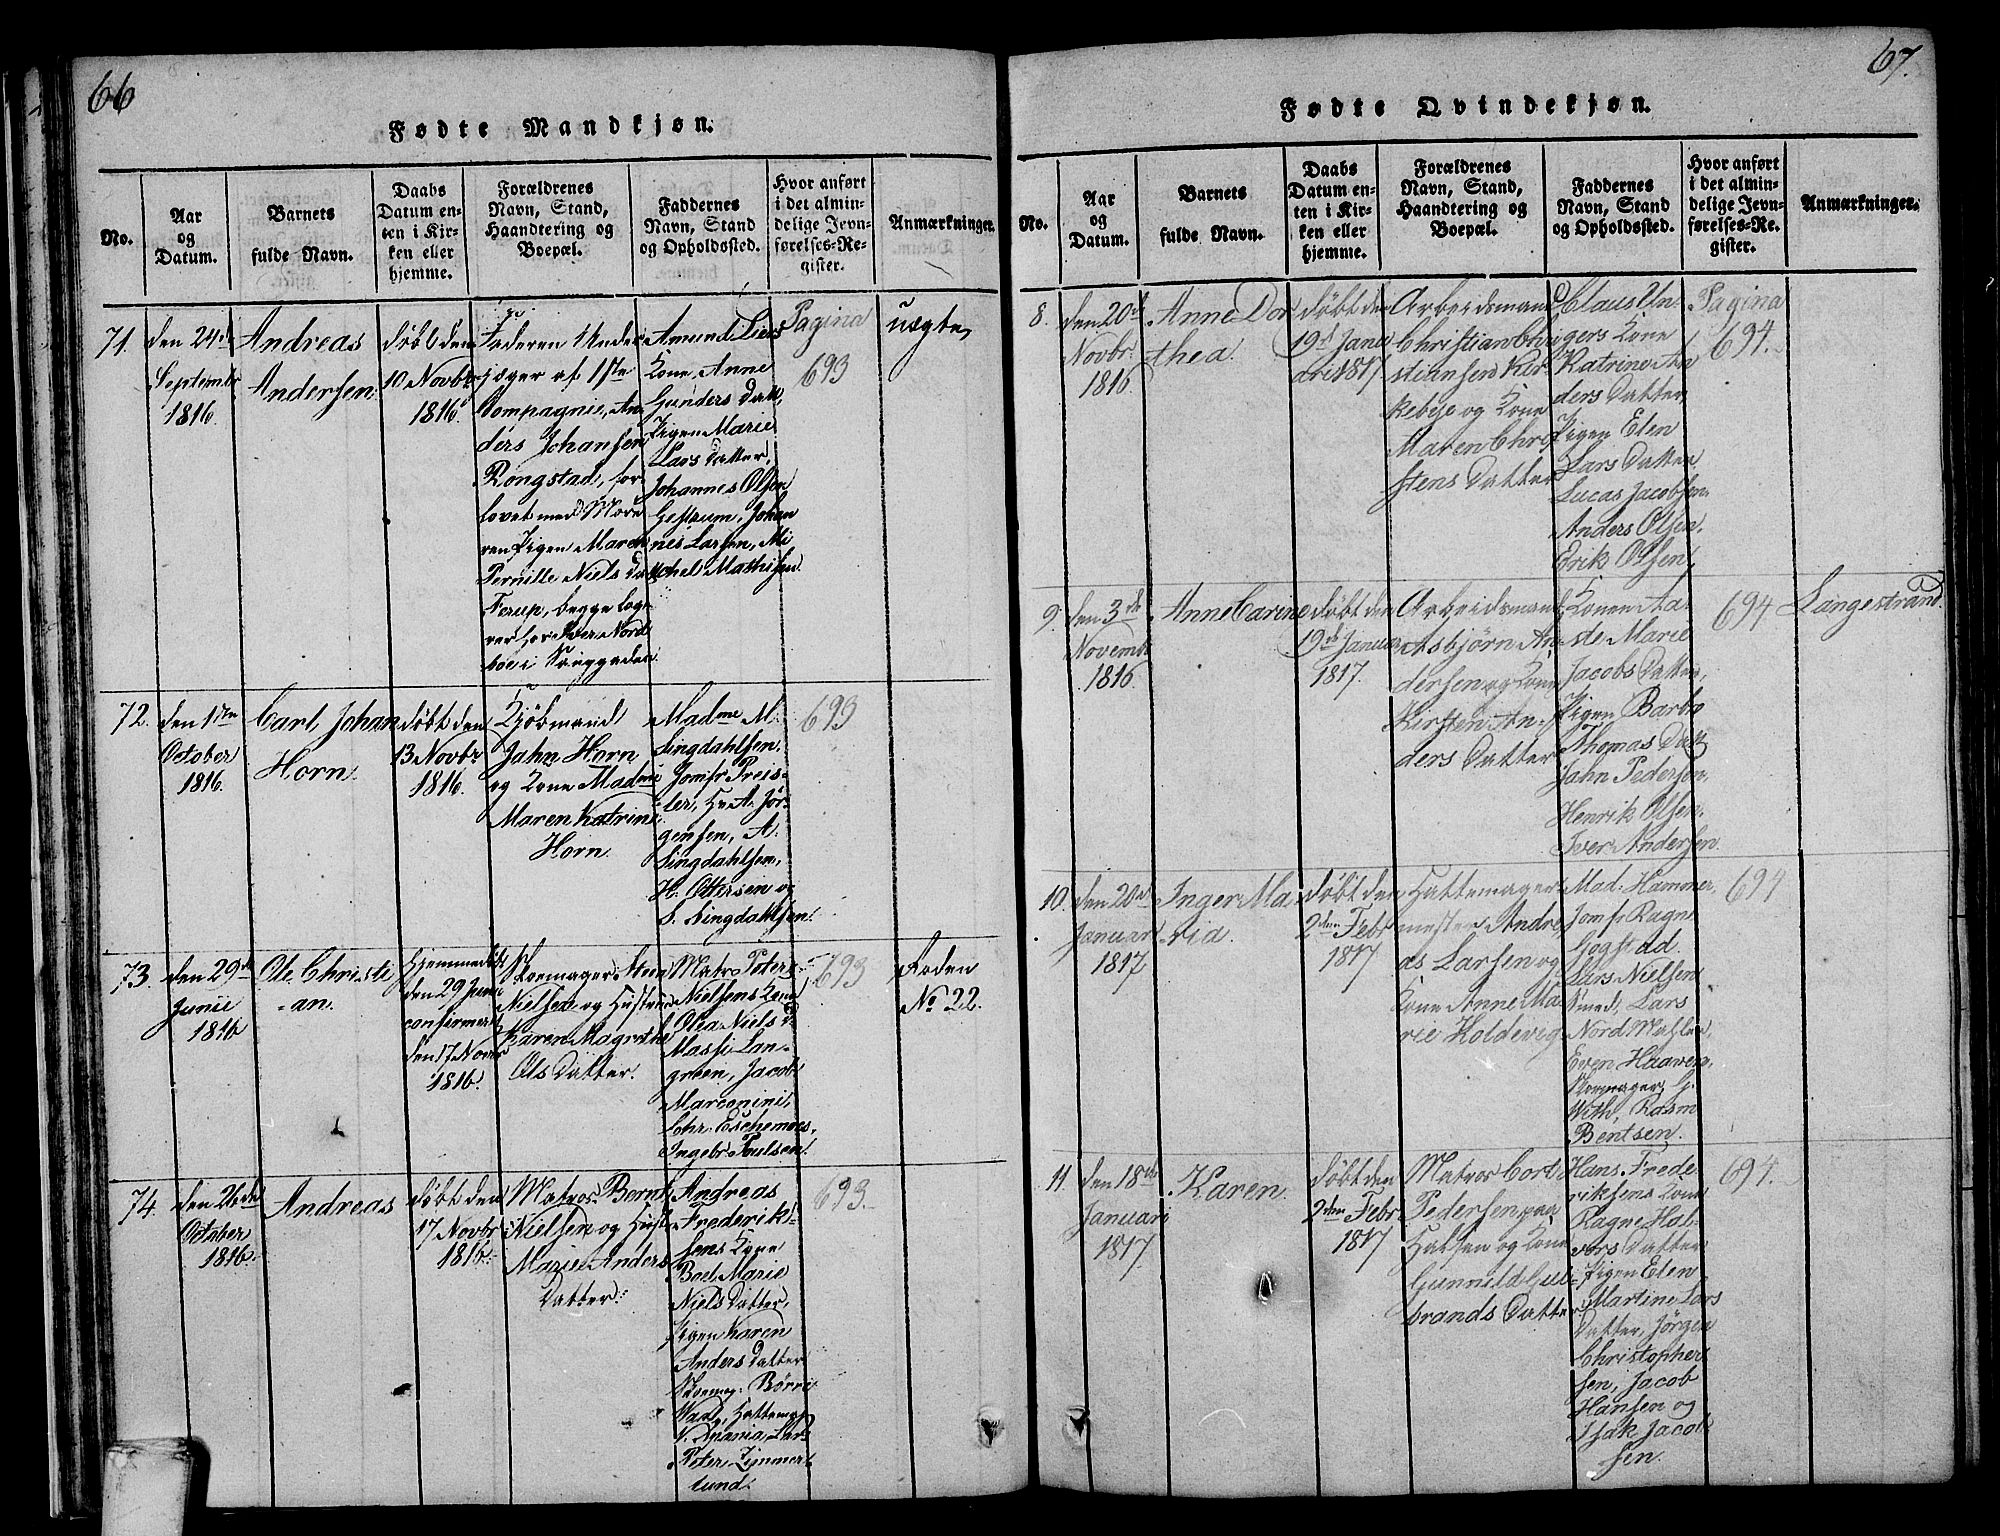 66
Fødte Mandkjøn.
No.
Aar
og
Datum.
Barnets
fulde Navn.
Daabs
Datum en-
ten i Kir-
ken eller
hjemme.
Forældrenes
Navn, Stand,
Haandtering og
Boepæl.
Faddernes
Navn, Stand
og Opholdssted.
Hvor anført
i det almin-
delige Jevn-
førelses-Re-
gister.
Anmærkninger.
71.
den 24de
Septembr
1816.
Andreas
Andersen.
døbt den
10 Novbr
1816.
Faderen Under
jæger af 1ste
Compagnie, An
ders Johansen
Rongstad, for
lovet med Mode
ren Pigen Maren
Pernille Niels Datt
Ferup, begge loge
rer hos Iver Nord
boe i
Amund Liers
Kone Anne
Gunders Datt,
Pigen Marie
Lars Datter,
Johannes Olsen
Gestrum, Johan
nes Larsen, Mi
chel Mathisen.
Pagina
693
uægte,
72.
den 1ste
October
1816.
Carl Johan
Horn.
døbt den
13 Novbr
1816.
Kjøbmand
Jahn Horn
og Kone Madme
Maren Katrine
Horn.
Madme M.
Lingdahlsen,
Jomfr Preis-
ler, Hr A. Jør-
gensen, A.
Lingdahlsen,
H. Ottersen og
S. Lingdahlsen.
693
73.
den 29de
Junie
1816
Ole Christi
=an.
Hjemmedøbt
den 29 Junii
confirmert
den 17 Novbr
1816.
Skoemager
Nielsen og Hustrue
Karen Magrethe
Ols Datter.
Matros Peter
Nielsens Kone
Olea Niels D.
Massi Lan-
green, Jacob
Marconini,
Ingebr Poulsen.
693
Foden
No 22.
74.
den 26de
October
1816.
Andreas
døbt den
17 Novbr
1816.
Matros Bernt
Nielsen og Hust.
Marie Anders
Datter.
Andreas
Frederik-
sens Kone
Boel Marie
Niels Datter,
Pigen Karen
Anders Datter
Skoemag: Børre
Hattemag
Peter Zimmer
lund.
693.
67.
Fødte Qvindekjøn.
No.
Aar
og
Datum.
Barnets
fulde Navn.
Daabs
Datum en-
ten i Kir-
ken eller
hjemme.
Forældrenes
Navn, Stand,
Haandtering og
Boepæl.
Faddernes
Navn, Stand
og Opholdssted.
Hvor anført
i det almin-
delige Jevn-
førelses-Re-
gister.
Anmærkninger.
8.
den 20d
Novbr.
1816
Anne Dor
thea.
døbt den
19d Janu
ari 1817
Arbeidsmand
Christian Chri
stiansen Kir
kebye og Kone
Maren Chri
stens Datter
Claus Un-
gers Kone
Katrine An
ders Datter,
Pigen Elen
Lars Datter
Lucas Jacobsen
Anders Olsen,
Erik Olsen,
Pagina
694.
9.
den 3de
Novemb
1816
Anne Carine
døbt den
19de Januar
1817.
Arbeidsmand
Asbjørn An
dersen og Kone
Kirsten An-
ders Datter
Konen Aa-
ste Marie
Jacobs Datter,
Pigen Barbo
Thomas Datt
Jahn Pedersen,
Henrik Olsen,
Iver Andersen
694
Langestrand.
10.
den 20de
Januar
1817
Inger Ma
ria.
døbt den
2den Febr
1817
Hattemager
mester Andre
as Larsen og
Kone Anne Ma
rie Holdevig
Mad: Hammer,
Jomfr Ragne
Gogstad
Lars Nielsen
Smed, Lars
Nord Møhlen,
Even Haavers,
Skoemager G.
With, Rasm
Bentsen.
694
11.
den 18de
Januari
1817
Karen.
døbt den
2den Febr
1817
Matros Cort
Pedersen paa
Halsen og Kone
Gunnild Gul-
brands Datter
Hans Frede
riksens Kone
Ragne Hal
vors Datter
Pigen Elen
Martine Lars
Datter, Jørgen
Christopher
sen, Jacob
Hansen og
Isak Jacob
sen.
694.